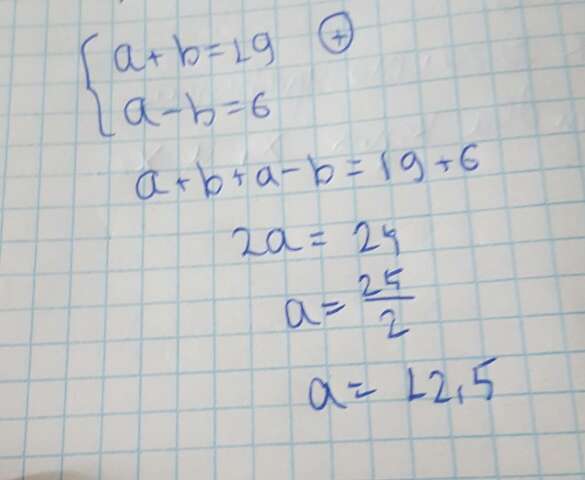 a+b=19 ⊕
a-b=6
a+b+a-b=19+6
2a=25
a=25/2
a=12,5